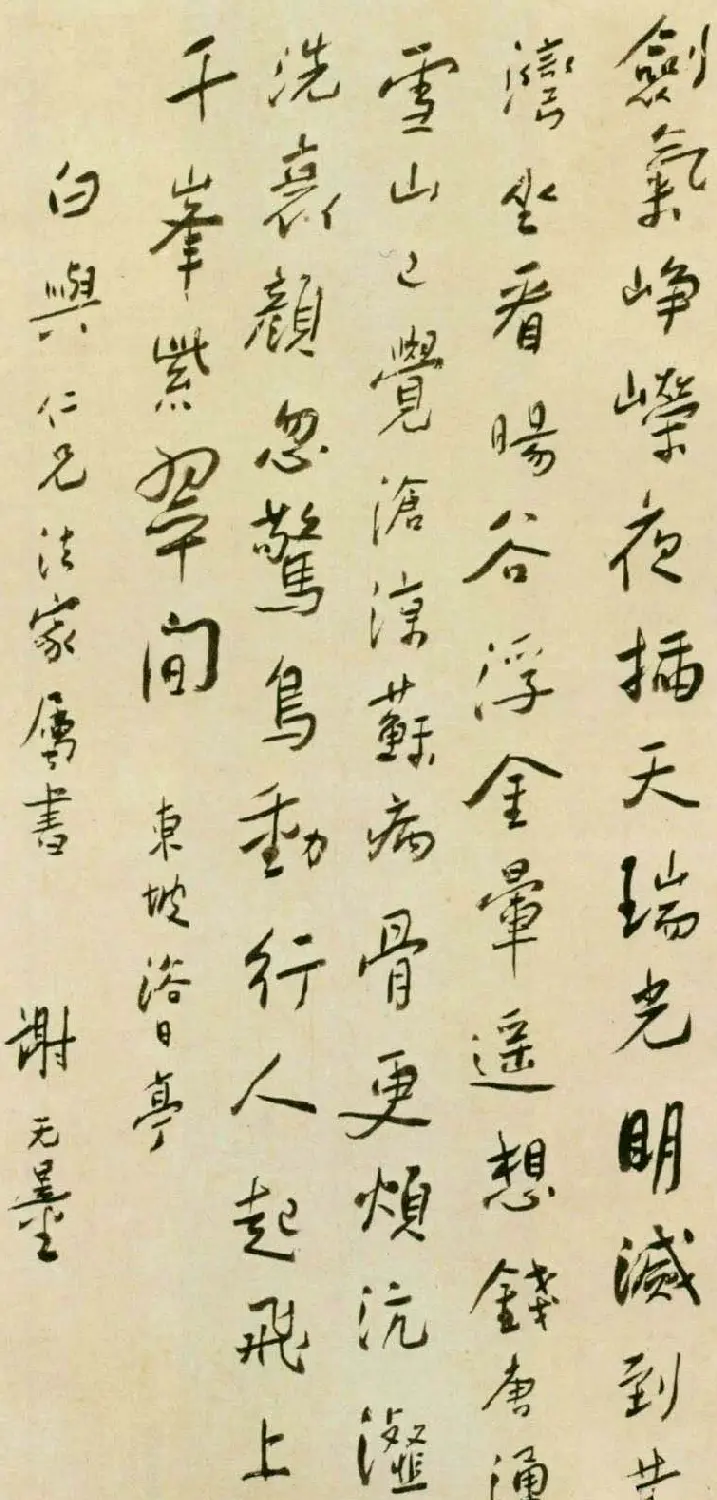 劍氣峥嶸夜插天瑞光明滅到
灣坐看暘谷浮金暈遥想錢唐涌
雪山已覺滄涼蘇病骨更煩沆瀣
洗衰顔忽驚鳥動行人起飛上
千峯紫翠間 東坡浴日亭
白與仁兄法家屬書 謝无量